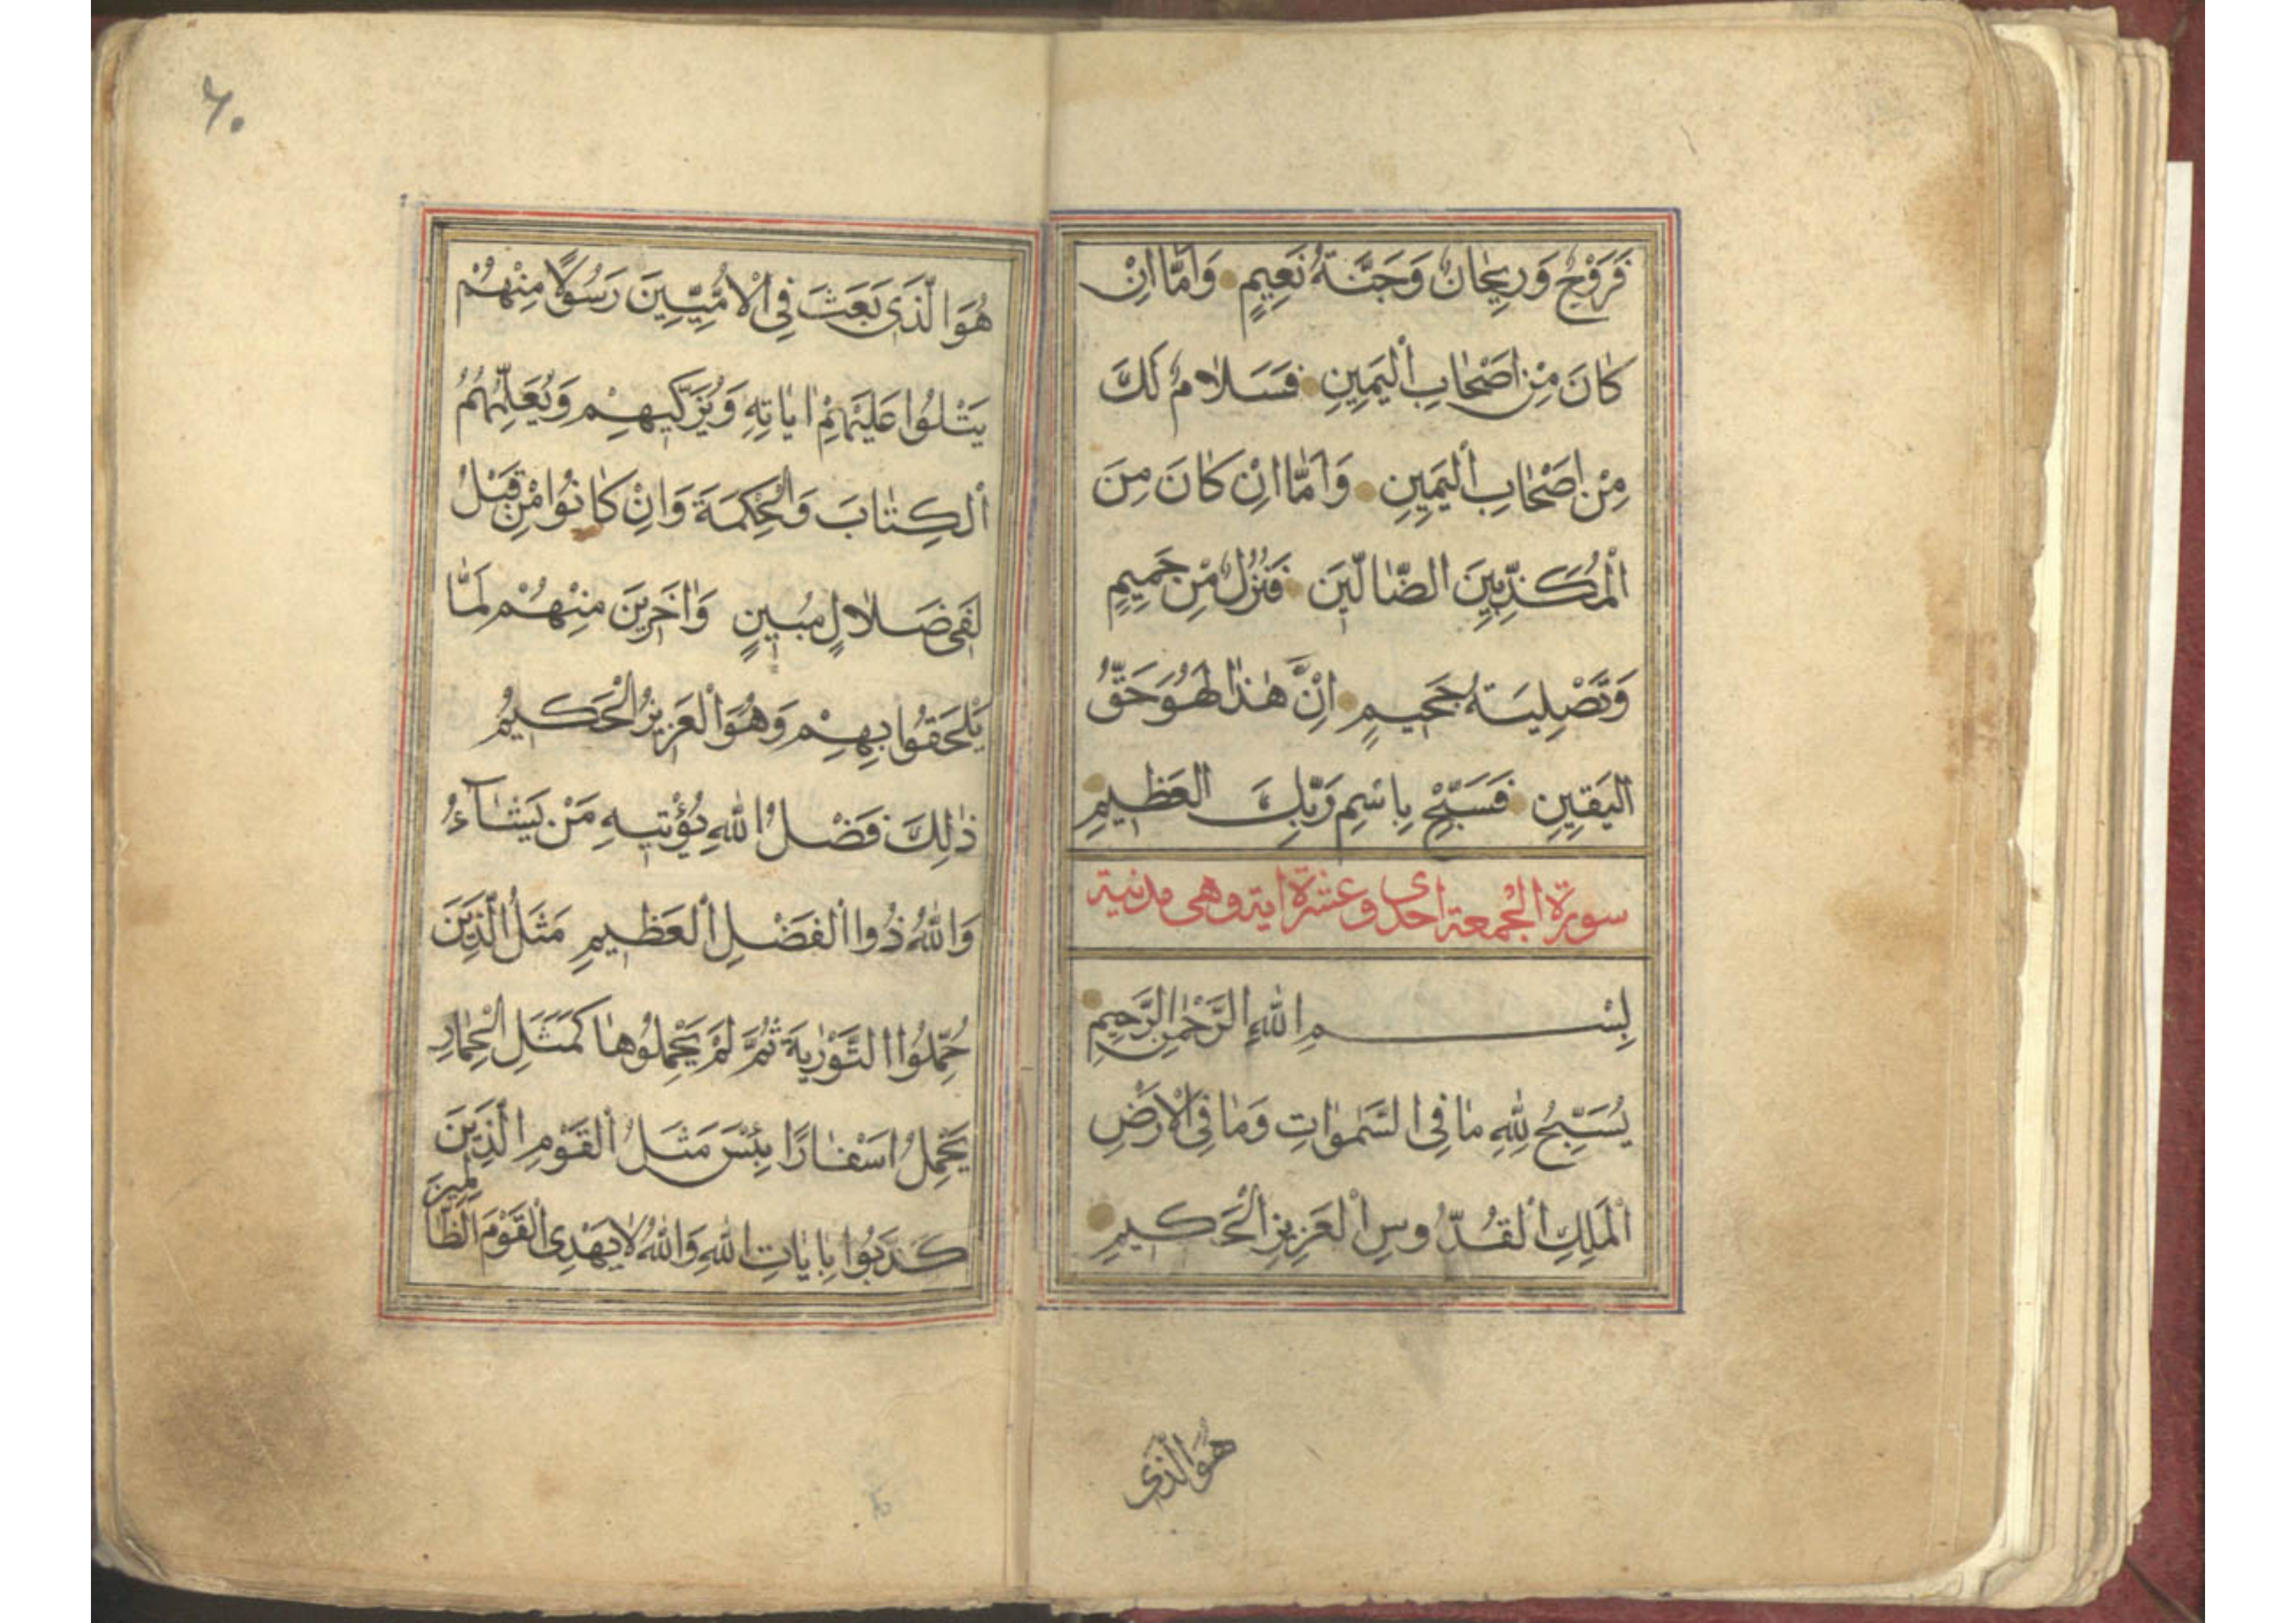 فَرَوْحٌ وَرَيْحَانٌ وَجَنَّةُ نَعِيمٍ وَاَمَّا اِنْ
كَانَ مِنْ اَصْحَابِ الْيَمِينِ فَسَلَامٌ لَكَ
مِنْ اَصْحَابِ الْيَمِينِ وَاَمَّا اِنْ كَانَ مِنَ
الْمُكَذِّبِينَ الضَّالِّينَ فَنُزُلٌ مِنْ حَمِيمٍ
وَتَصْلِيَةُ جَحِيمٍ اِنَّ هٰذَا لَهُوَ حَقُّ
الْيَقِينِ فَسَبِّحْ بِاسْمِ رَبِّكَ الْعَظِيمِ
سورة الجمعة احدى وعشرة اية وهى مدنية
بِسْمِ اللهِ الرَّحْمٰنِ الرَّحِيمِ
يُسَبِّحُ لِلّٰهِ مَا فِى السَّمٰوَاتِ وَمَا فِى الْاَرْضِ
الْمَلِكِ الْقُدُّوسِ الْعَزِيزِ الْحَكِيمِ
هُوَالَّذى
٦٠
هُوَ الَّذِى بَعَثَ فِى الْاُمِّيِّينَ رَسُولًا مِنْهُمْ
يَتْلُوا عَلَيْهِمْ اٰيَاتِهِ وَيُزَكِّيهِمْ وَيُعَلِّمُهُمُ
الْكِتَابَ وَالْحِكْمَةَ وَاِنْ كَانُوا مِنْ قَبْلُ
لَفِى ضَلَالٍ مُبِينٍ وَاٰخَرِينَ مِنْهُمْ لَمَّا
يَلْحَقُوا بِهِمْ وَهُوَ الْعَزِيزُ الْحَكِيمُ
ذٰلِكَ فَضْلُ اللهِ يُؤْتِيهِ مَنْ يَشَآءُ
وَاللهُ ذُوا الْفَضْلِ الْعَظِيمِ مَثَلُ الَّذِينَ
حُمِّلُوا التَّوْرٰيةَ ثُمَّ لَمْ يَحْمِلُوهَا كَمَثَلِ الْحِمَارِ
يَحْمِلُ اَسْفَارًا بِئْسَ مَثَلُ الْقَوْمِ الَّذِينَ
كَذَّبُوا بِاٰيَاتِ اللهِ وَاللهُ لَا يَهْدِى الْقَوْمَ الظَّالِمِينَ